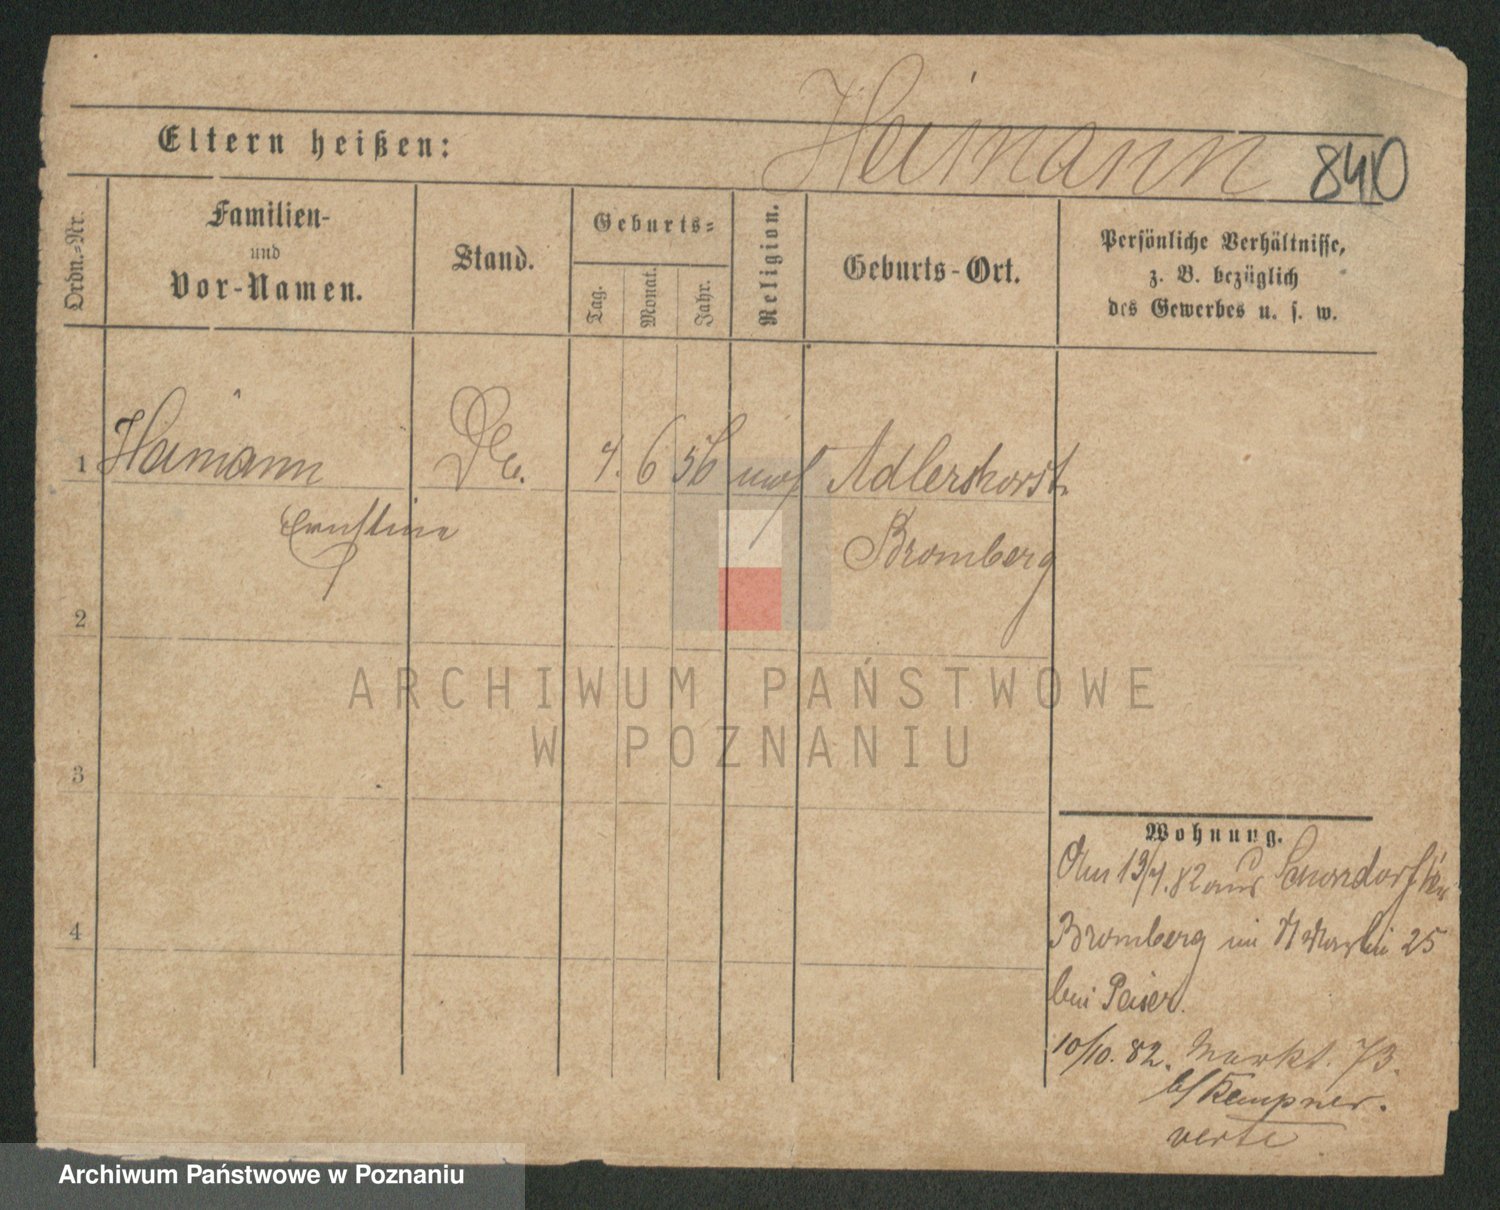 Heimann 840
Eltern heißen:
Ordn.-Nr.
Familien-
und
Vor-Namen.
Stand.
Geburts-
Tag.
Monat.
Jahr.
Religion.
Geburts-Ort.
Persönliche Verhältnisse,
z. B. bezüglich
des Gewerbes u. s. w.
1 Heimann 7. 6 56 mos Adlershorst
Ernstine Bromberg
2
3
4
Wohnung.
Am 13/7. 82 aus
Bromberg in St Martin 25
bei Peiser.
10/10. 82. Markt. 73.
b/ Kempner.
verte
ARCHIWUM PAŃSTWOWE
W POZNANIU
Archiwum Państwowe w Poznaniu